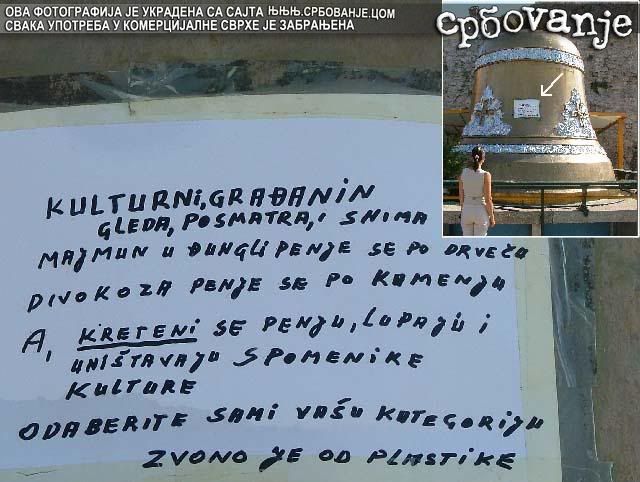 ОВА ФОТОГРАФИЈА ЈЕ УКРАДЕНА СА САЈТА ЊЊЊ.СРБОВАЊЕ.ЦОМ
СВАКА УПОТРЕБА У КОМЕРЦИЈАЛНЕ СВРХЕ ЈЕ ЗАБРАЊЕНА
србоvanje
KULTURNI, GRAĐANIN
GLEDA, POSMATRA, I SNIMA
MAJMUN U ĐUNGLI PENJE SE PO DRVEĆU
DIVOKOZA PENJE SE PO KAMENJU
A, KRETENI SE PENJU, LUPAJU I
UNIŠTAVAJU SPOMENIKE
KULTURE
ODABERITE SAMI VAŠU KATEGORIJU
ZVONO JE OD PLASTIKE